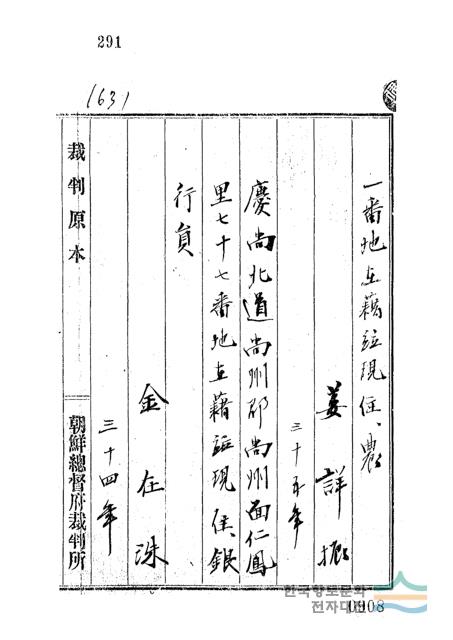 291
1631
一番地在籍竝現住、農
姜詳振
三十五年
慶尚北道尚州郡尚州面仁鳳
里七十七番地在籍竝現住、銀
行員
金在洙
三十四年
裁判原本
朝鮮總督府裁判所
한국향토문화
전자대전
0908